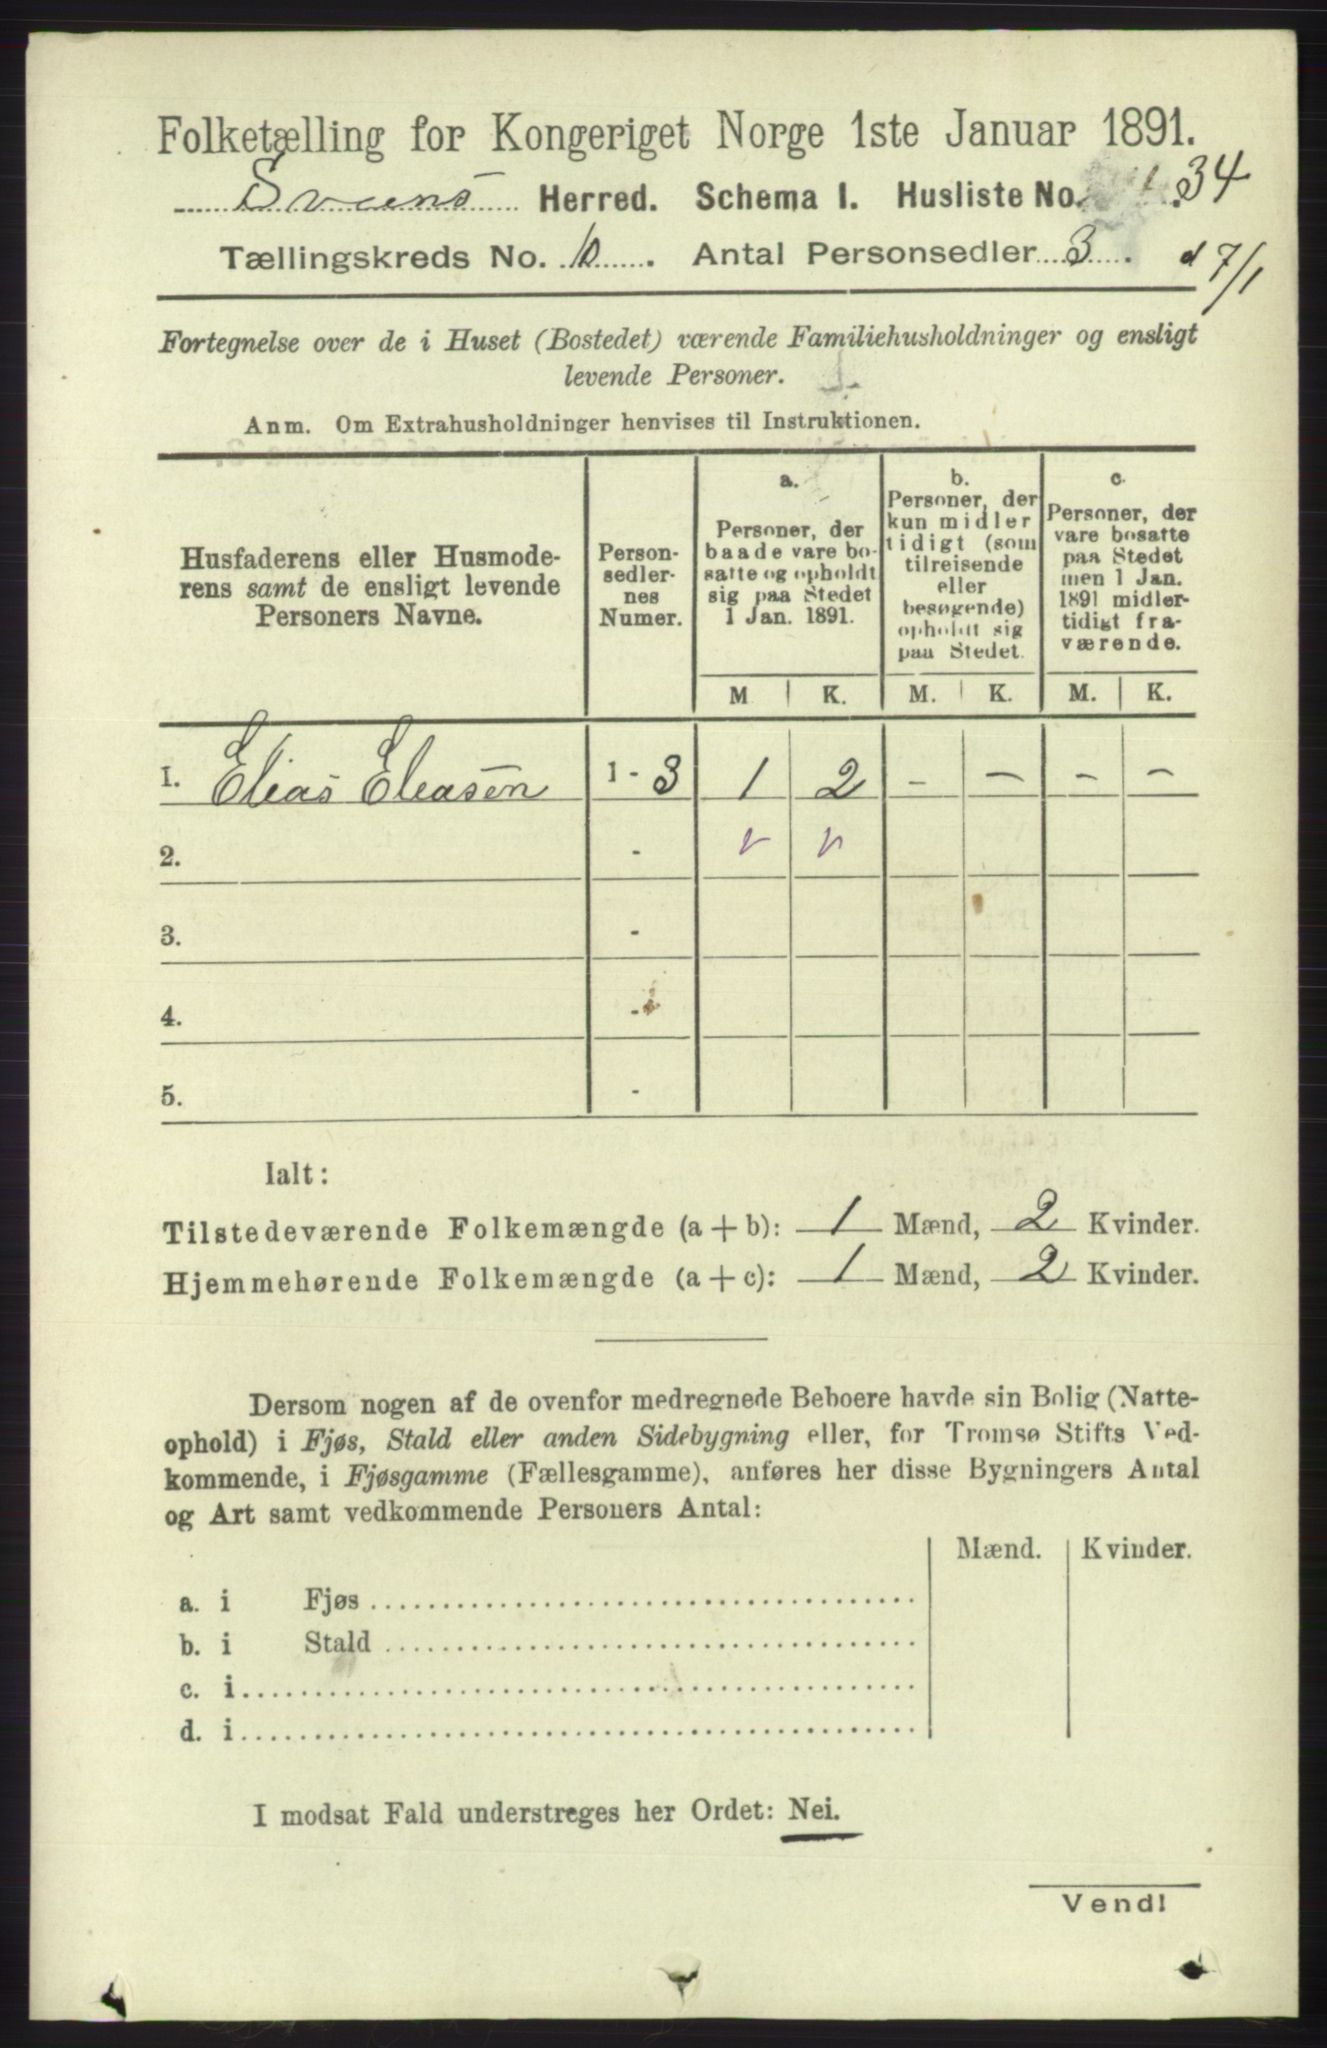 Folketælling for Kongeriget Norge 1ste Januar 1891.
Sveens Herred. Schema I. Husliste No. 34
Tællingskreds No. 10. Antal Personsedler 3. d 7/1
Fortegnelse over de i Huset (Bostedet) værende Familiehusholdninger og ensligt
levende Personer.
Anm. Om Extrahusholdninger henvises til Instruktionen.
Husfaderens eller Husmode-
rens samt de ensligt levende
Personers Navne.
Person-
sedler-
nes
Numer.
a.
Personer, der
baade vare bo-
satte og opholdt
sig paa Stedet
1 Jan. 1891.
b.
Personer, der
kun midler
tidigt (som
tilreisende
eller
besøgende)
opholdt sig
paa Stedet.
c.
Personer, der
vare bosatte
paa Stedet
men 1 Jan.
1891 midler-
tidigt fra-
værende.
M K. M. K. M. K.
1. Elias Eleasen 1 - 3 1 2 - - - -
2. - v v
3. -
4. -
5. -
Ialt:
Tilstedeværende Folkemængde (a + b): 1 Mænd, 2 Kvinder.
Hjemmehørende Folkemængde (a + c): 1 Mænd, 2 Kvinder.
Dersom nogen af de ovenfor medregnede Beboere havde sin Bolig (Natte-
ophold) i Fjøs, Stald eller anden Sidebygning eller, for Tromsø Stifts Ved-
kommende, i Fjøsgamme (Fællesgamme), anføres her disse Bygningers Antal
og Art samt vedkommende Personers Antal:
Mænd. Kvinder.
a. i Fjøs
b. i Stald
c. i
d. i
I modsat Fald understreges her Ordet: Nei.
Vend!